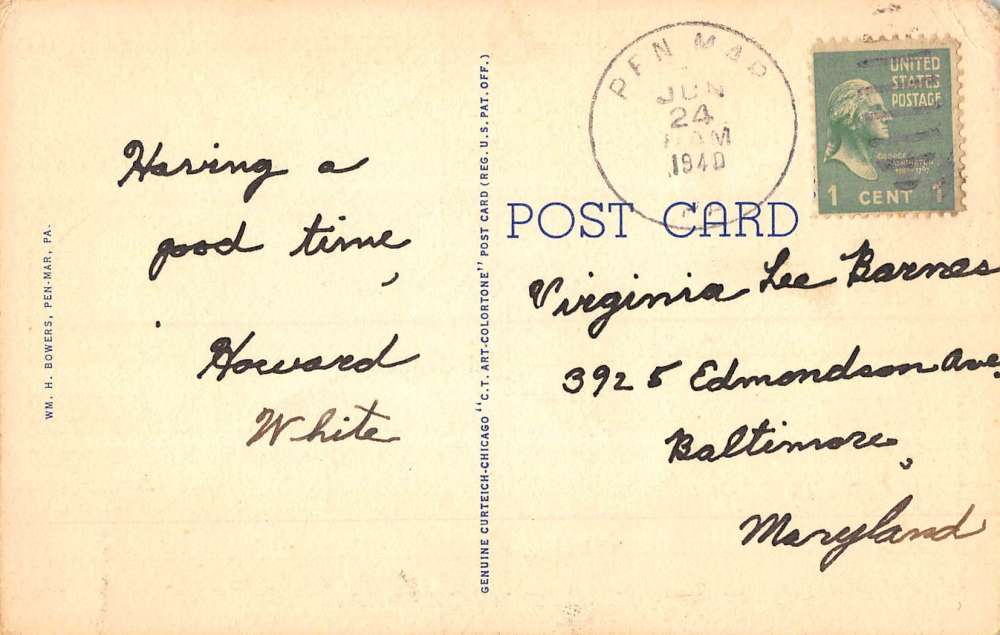 Having a
good time,
Howard
White
WM. H. BOWERS, PEN-MAR, PA.
GENUINE CURTEICH-CHICAGO "C.T. ART-COLORTONE" POST CARD (REG. U.S. PAT. OFF.)
PEN MAR
JUN
24
AM
1940
UNITED
STATES
POSTAGE
GEORGE
WASHINGTON
1 CENT 1
POST CARD
Virginia Lee Barnes
3925 Edmondson Ave,
Baltimore,
Maryland